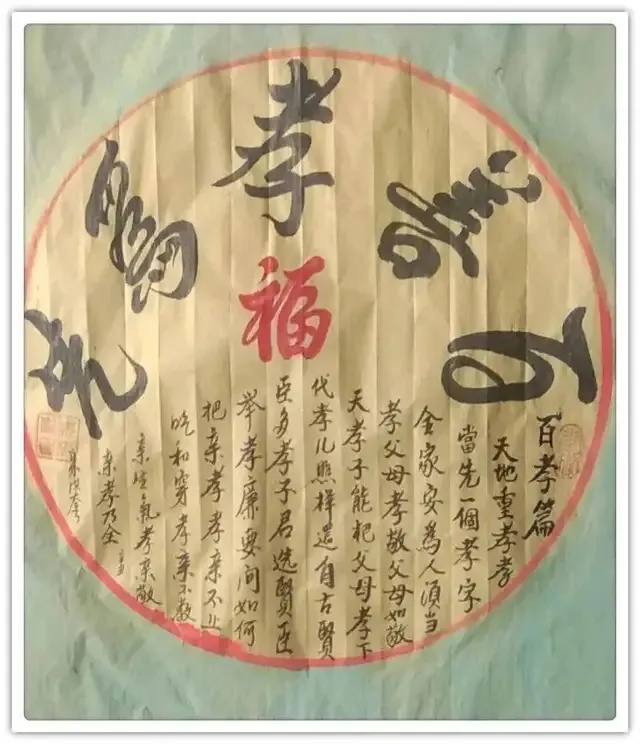 百善孝為先
福
百孝篇
天地重孝孝
當先一個孝字
全家安為人須当
孝父母孝敬父母如敬
天孝子能把父母孝下
代孝儿照样還自古賢
臣多孝子君选賢臣
举孝廉要问如何
把亲孝孝亲不止
吃和穿孝亲不教
亲生氣孝亲敬
亲孝乃全